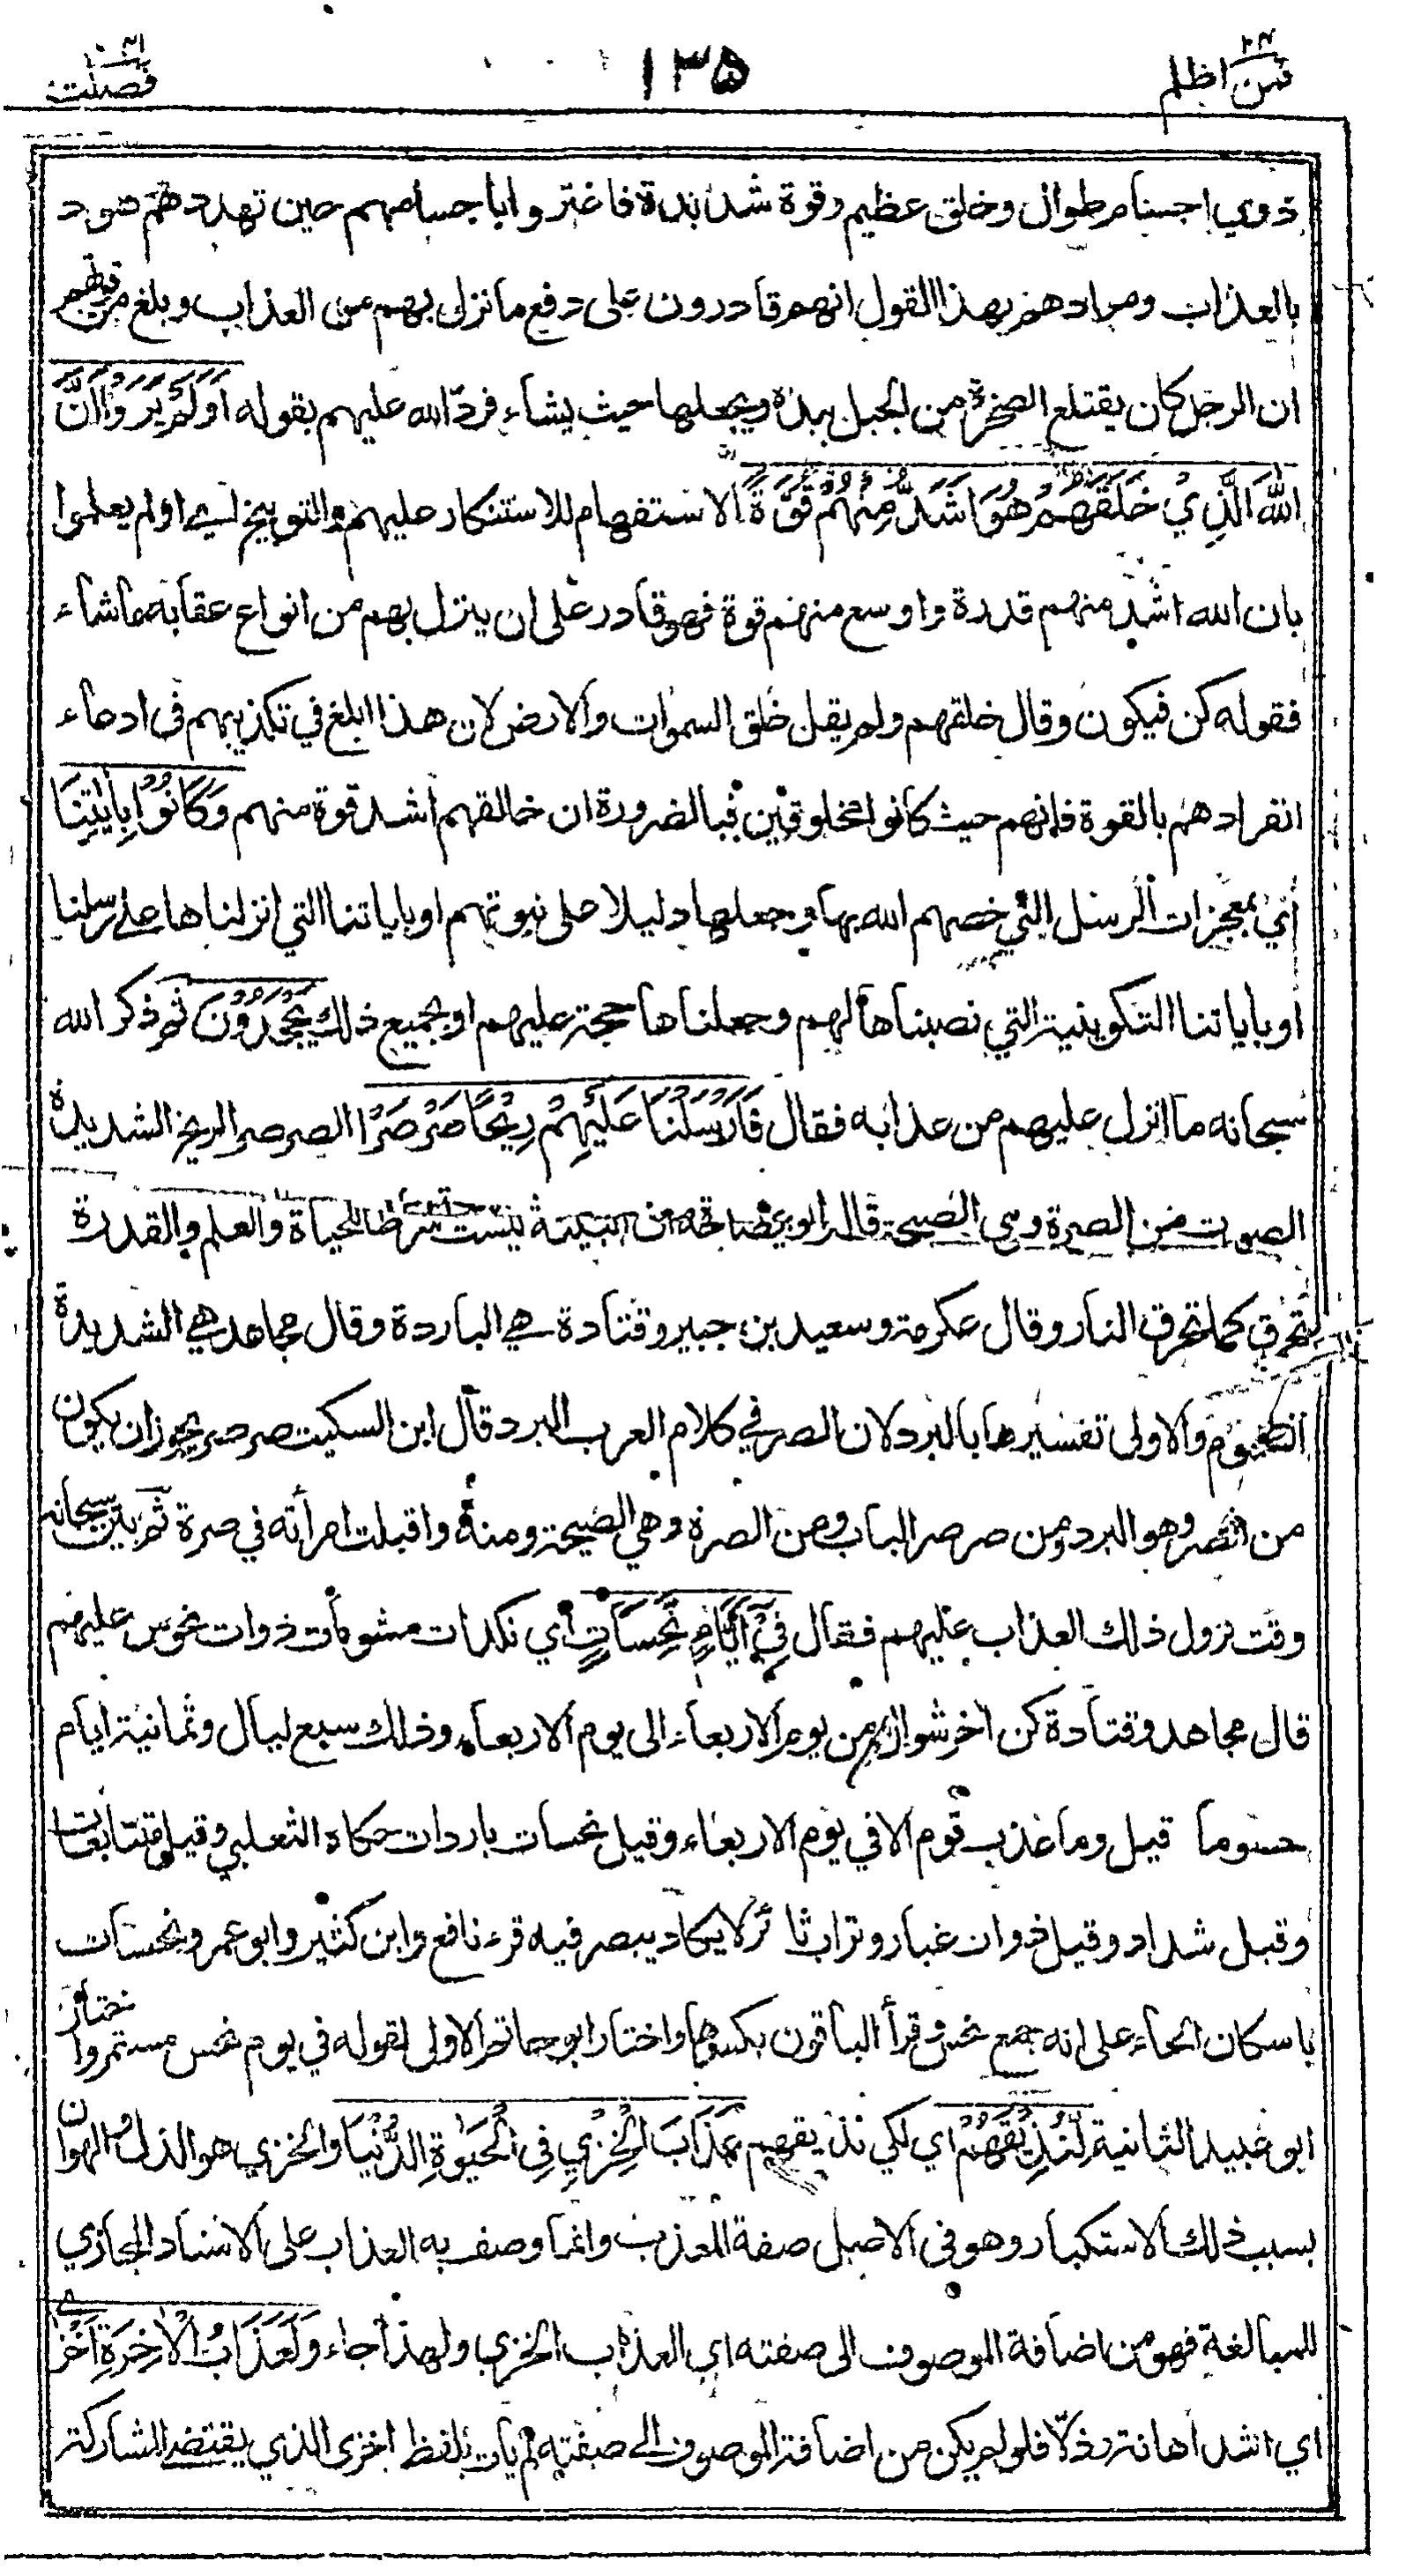 فمن اظلم ٢٤
١٣٥
فصلت ٤١
ذوي اجسام طوال وخلق عظيم وقوة شديدة فاغتروا باجسامهم حين تهددهم هود
بالعذاب ومرادهم بهذا القول انهم قادرون على دفع ما نزل بهم من العذاب وبلغ من قوتهم
ان الرجل كان يقتلع الصخرة من الجبل بيده ويجعلها حيث يشاء فردّ الله عليهم بقوله اَوَلَمْ يَرَوْا اَنَّ
اللّٰهَ الَّذِيْ خَلَقَهُمْ هُوَ اَشَدُّ مِنْهُمْ قُوَّةً الاستفهام للاستنكار عليهم والتوبيخ لهم اي اولم يعلموا
بان الله اشد منهم قدرة واوسع منهم قوة فهو قادر على ان ينزل بهم من انواع عقابه ما شاء
فقوله كن فيكون وقال خلقهم ولم يقل خلق السموات والارض لان هذا ابلغ في تكذيبهم في ادعاء
انفرادهم بالقوة فانهم حيث كانوا مخلوقين فبالضرورة ان خالقهم اشد قوة منهم وَكَانُوْا بِاٰيٰتِنَا
اي بمعجزات الرسل التي خصهم الله بها وجعلها دليلا على نبوتهم او باياتنا التي انزلناها على رسلنا
او باياتنا التكوينية التي نصبناها لهم وجعلناها حجة عليهم او بجميع ذلك يَجْحَدُوْنَ ثم ذكر الله
سبحانه ما انزل عليهم من عذابه فقال فَاَرْسَلْنَا عَلَيْهِمْ رِيْحًا صَرْصَرًا الصرصر الريح الشديدة
الصوت من الصرة وهي الصيحة قال ابو عبيدة البنية ليست شرطا للحياة والعلم والقدرة
تحرق كما تحرق النار وقال عكرمة وسعيد بن جبير وقتادة هي الباردة وقال مجاهد هي الشديدة
السموم والاولى تفسيرها بالبرد لان الصر في كلام العرب البرد قال ابن السكيت صرصر يجوز ان يكون
من الصر وهو البرد ومن صرصر الباب ومن الصرة وهي الصيحة ومنه واقبلت امرأته في صرة ثم بين سبحانه
وقت نزول ذلك العذاب عليهم فقال فِيْ اَيَّامٍ نَّحِسَاتٍ اي نكدات مشومات ذوات نحوس عليهم
قال مجاهد وقتادة كن اخر شوال من يوم الاربعاء الى يوم الاربعاء وذلك سبع ليال وثمانية ايام
حسوما قيل وما عذب قوم الا في يوم الاربعاء وقيل نحسات باردات حكاه الثعلبي وقيل متتابعات
وقيل شداد وقيل ذوات غبار وتراب ثائر لا يكاد يبصر فيه قرء نافع وابن كثير وابو عمرو نحسات
باسكان الحاء على انه جمع نحس وقرأ الباقون بكسرها واختار ابو حاتم الاولى لقوله في يوم نحس مستمر واختار
ابو عبيد الثانية لِّنُذِيْقَهُمْ اي لكي نذيقهم عَذَابَ الْخِزْيِ فِي الْحَيٰوةِ الدُّنْيَا والخزي هو الذل والهوان
بسبب ذلك الاستكبار وهو في الاصل صفة المعذب وانما وصف به العذاب على الاسناد المجازي
للمبالغة فهو من اضافة الموصوف الى صفته اي العذاب الخزي ولهذا جاء وَلَعَذَابُ الْاٰخِرَةِ اَخْزٰى
اي اشد اهانة وذلا فلو لم يكن من اضافة الموصوف الى صفته لم يات بلفظ اخزى الذي يقتضي المشاركة